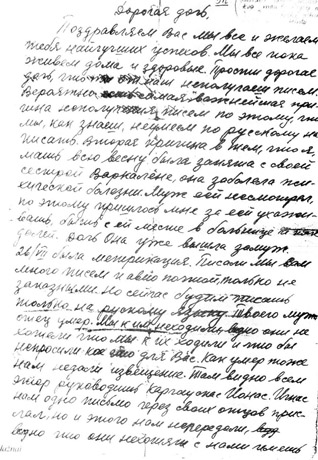 Дорогая дочь.
Поздравляем Вас мы все и желаем
тебя наилучших успехов. Мы все пока
живем дома и здоровые. Прости дорогая
дочь, что вам неполучаем писем.
Вероятно самая важнейшая при-
чина неполучения писем по этому, что
мы, как знаеш, неумеем по русскому на
писать. Вторая причина в том, что я,
мать всю весну была занята с своей
сестрой она заболела пси-
хической болезни. Муж ее несмотрел,
по этому пришлось мне за ей ухажи-
вать, быть с ей месте в больнице
дочь Она уже вышла замуж.
26/VI была Писали мы вам
много писем и авио почтой, только не
заказными. Но сейчас будим писать
только на рускому Твоего мужа
отец умер. Мы к им неходили, они не
хотели что мы к их ходили и что бы
непросили для Вас. Как умер тоже
нам недали извещение. Там видно всем
руководит Ионас. Игнас
нам одно письмо через своих отцов прис-
лал, но и этого нам непередали,
видно что они нехотят с нами иметь